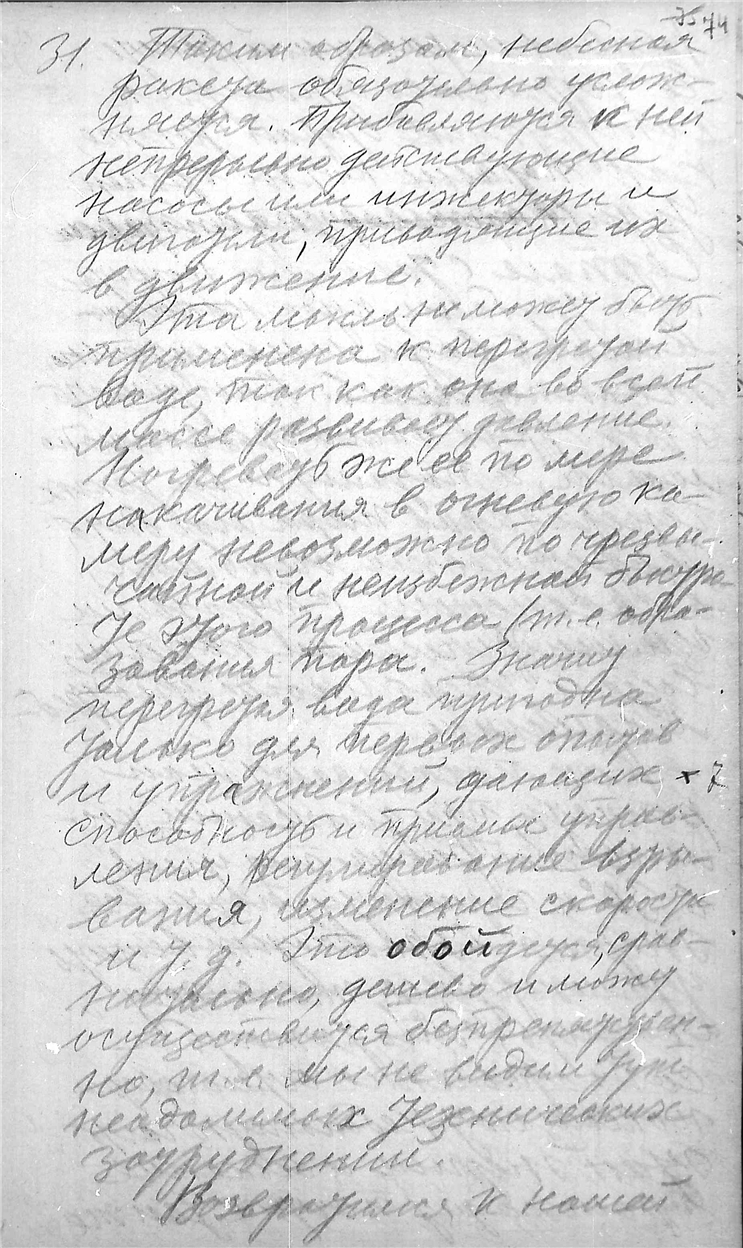 75 74
31. Таким образом, небесная
ракета обязательно услож-
няется. Прибавляются к ней
непрерывно действующие
насосы или инжекторы и
двигатели, приводящие их
в движение.
Эта мысль не может быть
применена к перегретой
воде, так как она во всей
массе развивает давление.
Нагревать же её по мере
накачивания в огневую ка-
меру невозможно по чрезвы-
чайной и неизбежной быстро-
те этого процесса (т.е. обра-
зования пара. Значит
перегретая вода пригодна
только для первых опытов
и упражнений, дающих × 7
способность и приёмы управ-
ления, регулирование взры-
вания, изменение скорости
и т.д. Это обойдется, срав-
нительно, дешево и может
осуществиться безпрепятствен-
но, т.е. мы не видим тут
неодолимых технических
затруднений.
Возвратимся к нашей